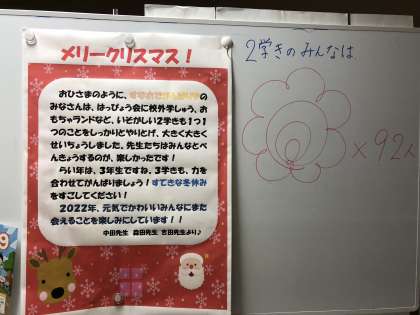 メリークリスマス！
おひさまのように、
みなさんは、はっぴょう会に校外学しゅう、お
もちゃランドなど、いそがしい2学きも1つ1
つのことをしっかりとやりとげ、大きく大きく
せいちょうしました。先生たちはみんなとべ
んきょうするのが、楽しかったです！
らい年は、3年生ですね。3学きも、力を
合わせてがんばりましょう！すてきな冬休み
をすごしてください！
2022年、元気でかわいいみんなにまた
会えることを楽しみにしています！！
中田先生 森田先生 吉田先生より♪
2学きのみんなは
×92人
9